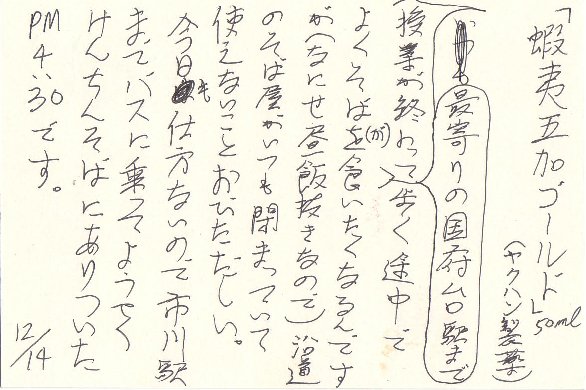 「蝦夷五加ゴールド」
50ml
(ヤクハン製薬)
最寄りの国府台駅まで
授業が終わって歩く途中で
よくそばを(が)食いたくなるんです
が(なにせ昼飯抜きなので)沿道
のそば屋がいつも閉まっていて
使えないことおびただしい。
今日も仕方ないので市川駅
までバスに乗ってようやく
けんちんそばにありついた
PM4:30です。
12/14